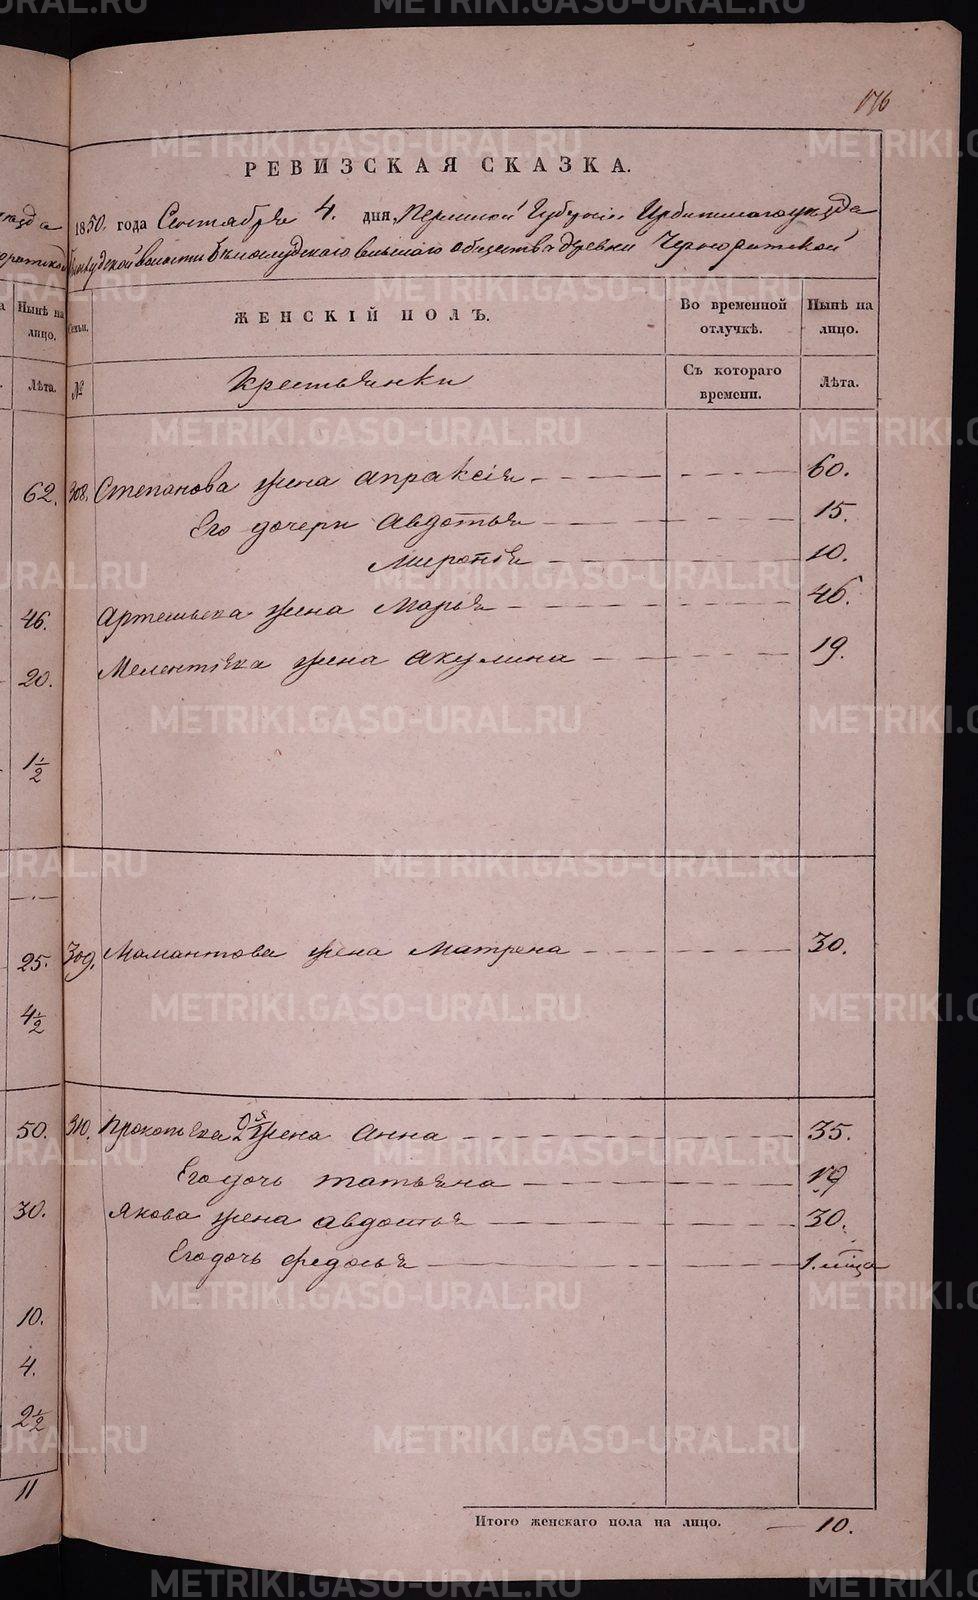 176
РЕВИЗСКАЯ СКАЗКА.
1850. года Сентября 4. дня, Пермской Губернии Ирбитского уезда
волости Белослудского сельского общества деревни
Семьи.
ЖЕНСКІЙ ПОЛЪ.
Во временной отлучкѣ.
Нынѣ на лицо.
№
Крестьянки
Съ котораго времени.
Лѣта.
308. Степанова жена Апраксія 60.
Его дочери Авдотья 15.
10.
Артемьева жена Марья 46.
Мелентьева жена Акулина 19.
309. Мамантова жена Матрена 30.
310. Прокопьева 2я жена Анна 35.
Его дочь Татьяна 19
Якова жена Авдотья 30.
Его дочь Федосья 1.
Итого женскаго пола на лицо. 10.
Нынѣ на лицо.
Лѣта.
62.
46.
20.
1½
25.
4½
50.
30.
10.
4.
2½
11
METRIKI.GASO-URAL.RU